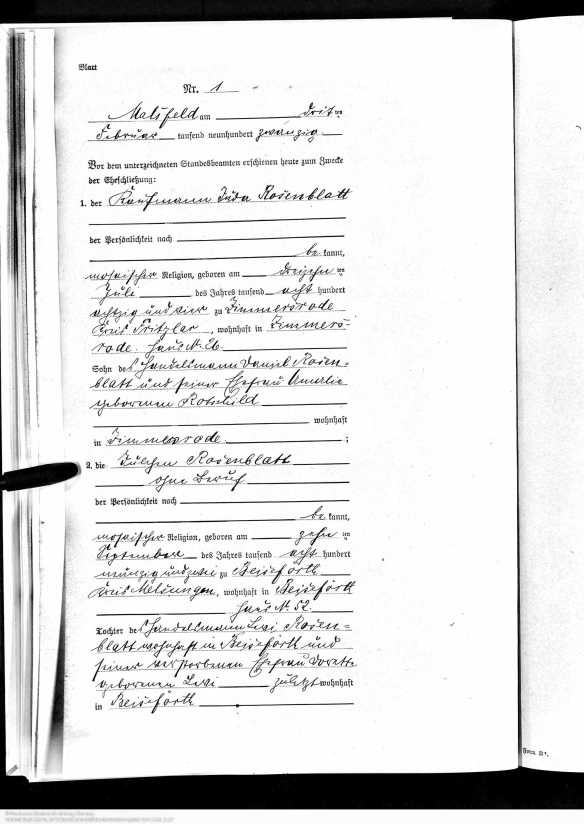 Blatt
Nr. 1
Malsfeld am dritten
Februar tausend neunhundert zwanzig
Vor dem unterzeichneten Standesbeamten erschienen heute zum Zwecke
der Eheschließung:
1. der Kaufmann Juda Rosenblatt
der Persönlichkeit nach
be kannt,
mosaischer Religion, geboren am dreizehn ten
Juli des Jahres tausend acht hundert
achtzig und vier zu Zimmersrode
Kreis Fritzlar, wohnhaft in Zimmers-
rode. Haus Nr. 26.
Sohn des Handelsmann Daniel Rosen-
blatt und seiner Ehefrau Amalie
geborenen Rotschild
wohnhaft
in Zimmersrode ;
2. die Julchen Rosenblatt
ohne Beruf
der Persönlichkeit nach
be kannt,
mosaischer Religion, geboren am zehn ten
September des Jahres tausend acht hundert
neunzig und zwei zu Beiseförth
Kreis Melsungen, wohnhaft in Beiseförth
Haus Nr. 52.
Tochter des Handelsmann Levi Rosen-
blatt wohnhaft in Beiseförth und
seiner verstorbenen Ehefrau
geborenen Levi zuletzt wohnhaft
in Beiseförth